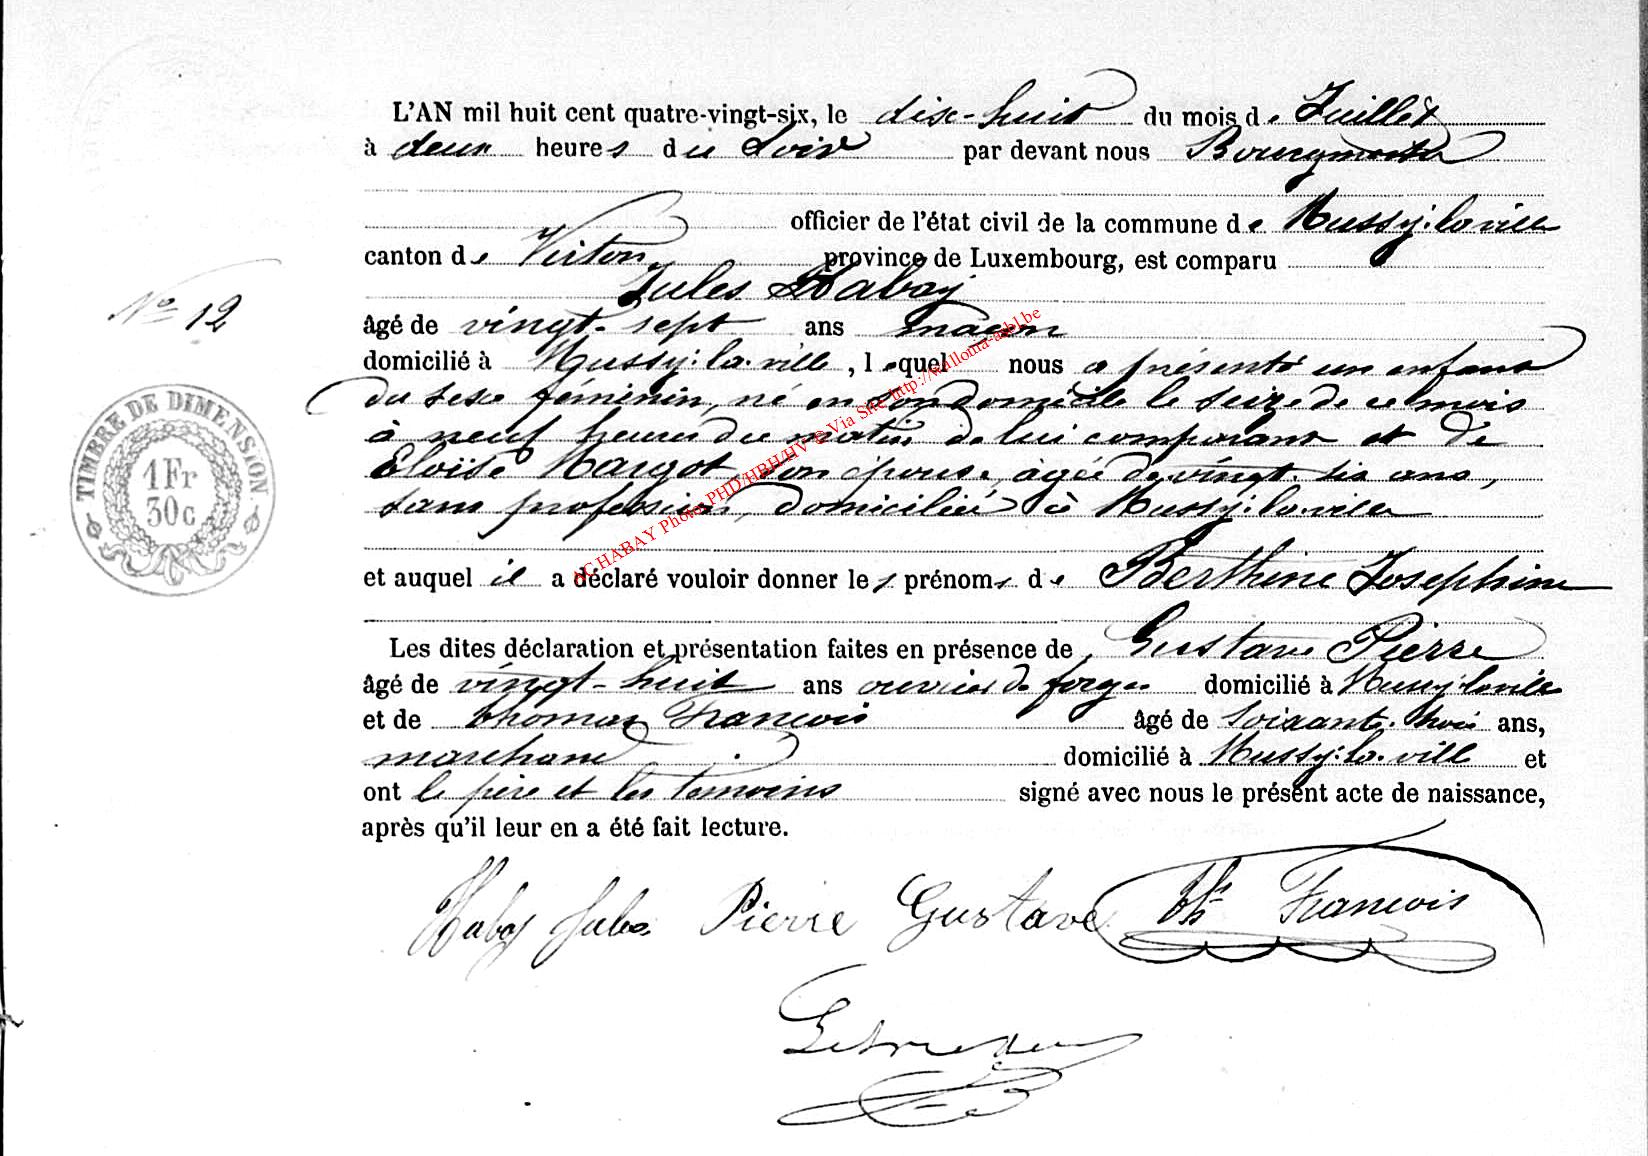 L'AN mil huit cent quatre-vingt-six, le dix-huit du mois de Juillet
à deux heures du Soir par devant nous Bourgmestre
officier de l'état civil de la commune de Mussy-la-ville
canton de Virton province de Luxembourg, est comparu
Jules Habay
N° 12
âgé de vingt-sept ans maçon
domicilié à Mussy-la-ville, lequel nous a présenté un enfant
du sexe féminin, né en son domicile le seize de ce mois
à neuf heures du matin de lui comparant et de
Eloïse Margot, son épouse, âgée de vingt-six ans,
sans profession, domiciliée à Mussy-la-ville
TIMBRE DE DIMENSION
1 Fr
30 c
et auquel il a déclaré vouloir donner les prénoms de Berthine Josephine
Les dites déclaration et présentation faites en présence de Gustave Pierre
âgé de vingt-huit ans ouvrier de forges domicilié à Mussy-la-ville
et de Thomas François âgé de soixante-trois ans,
marchand domicilié à Mussy-la-ville et
ont le père et les témoins signé avec nous le présent acte de naissance,
après qu'il leur en a été fait lecture.
Habay Jules Pierre Gustave Th François
AC HABAY Photos PHD/HBH/HV © Via Site http://wallonia-asbl.be